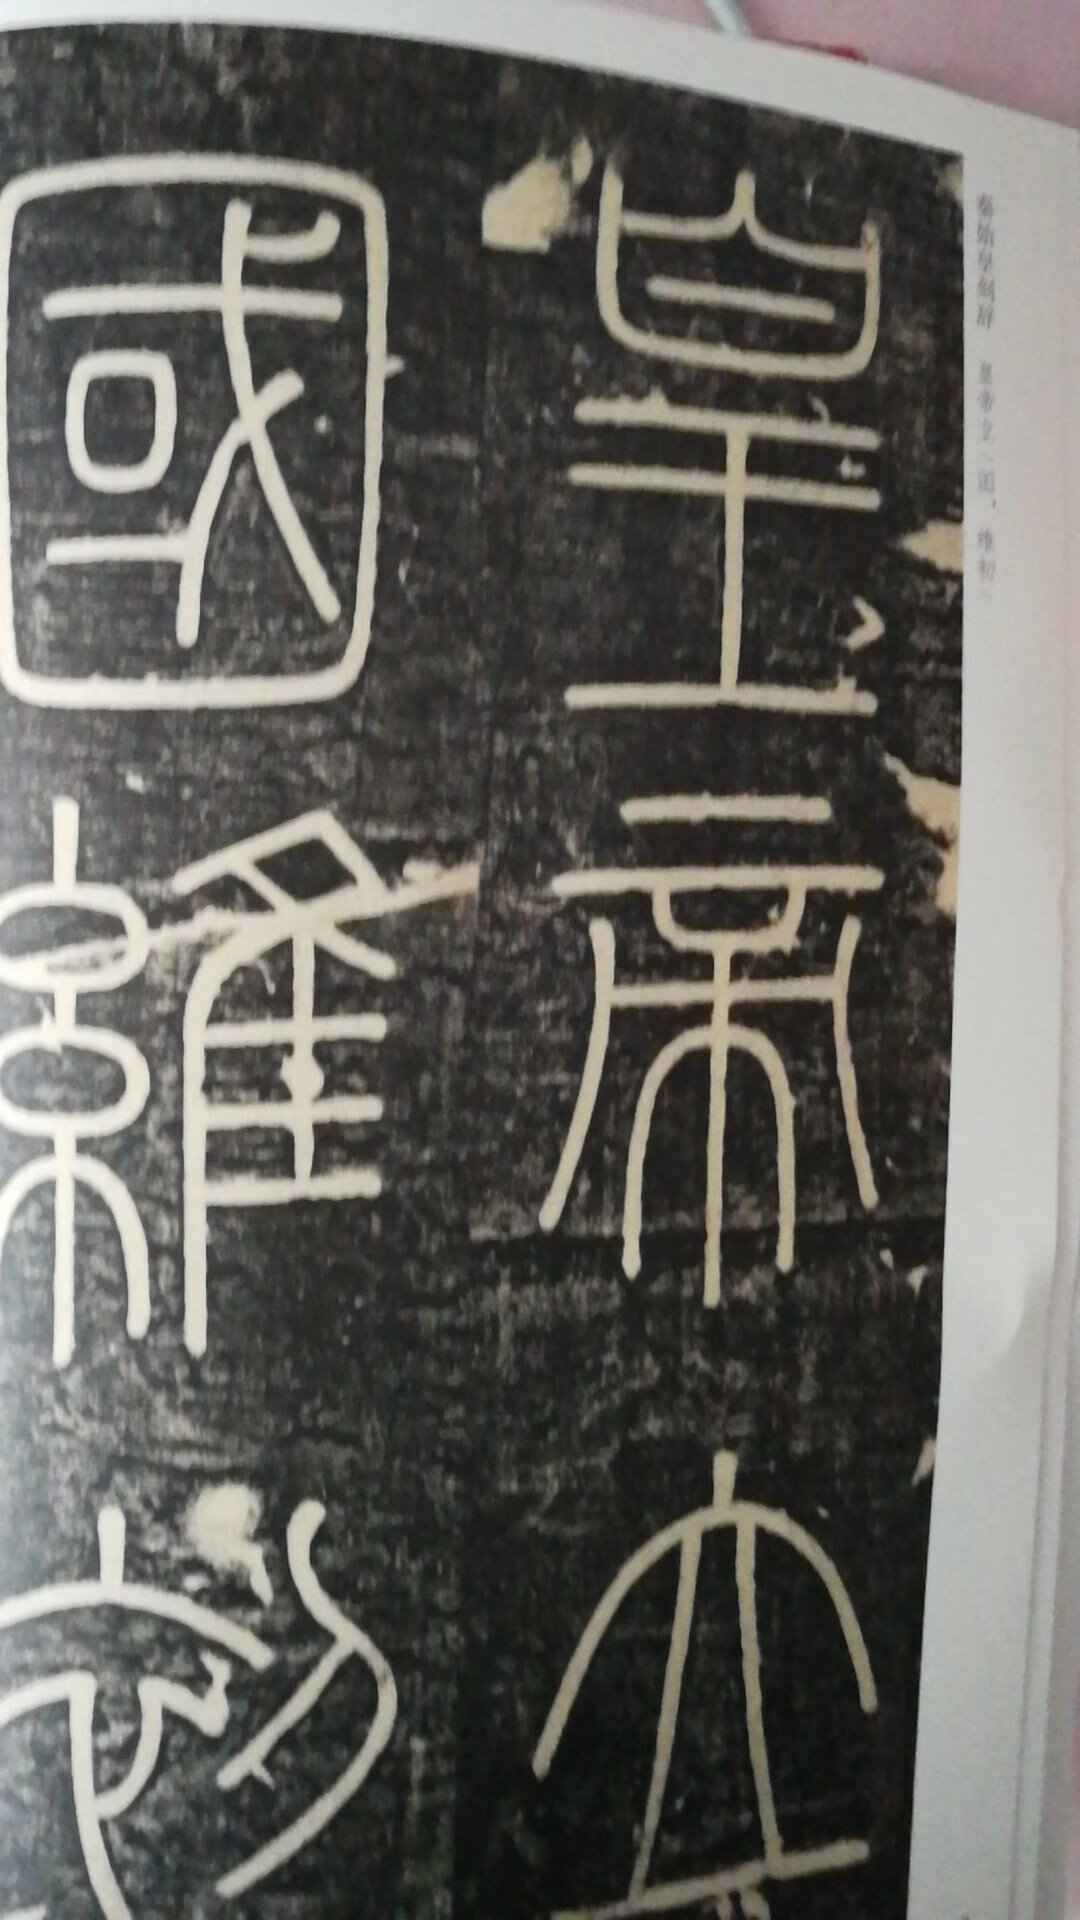 皇帝立
國維初
秦始皇刻辞 皇帝立\国,维初\